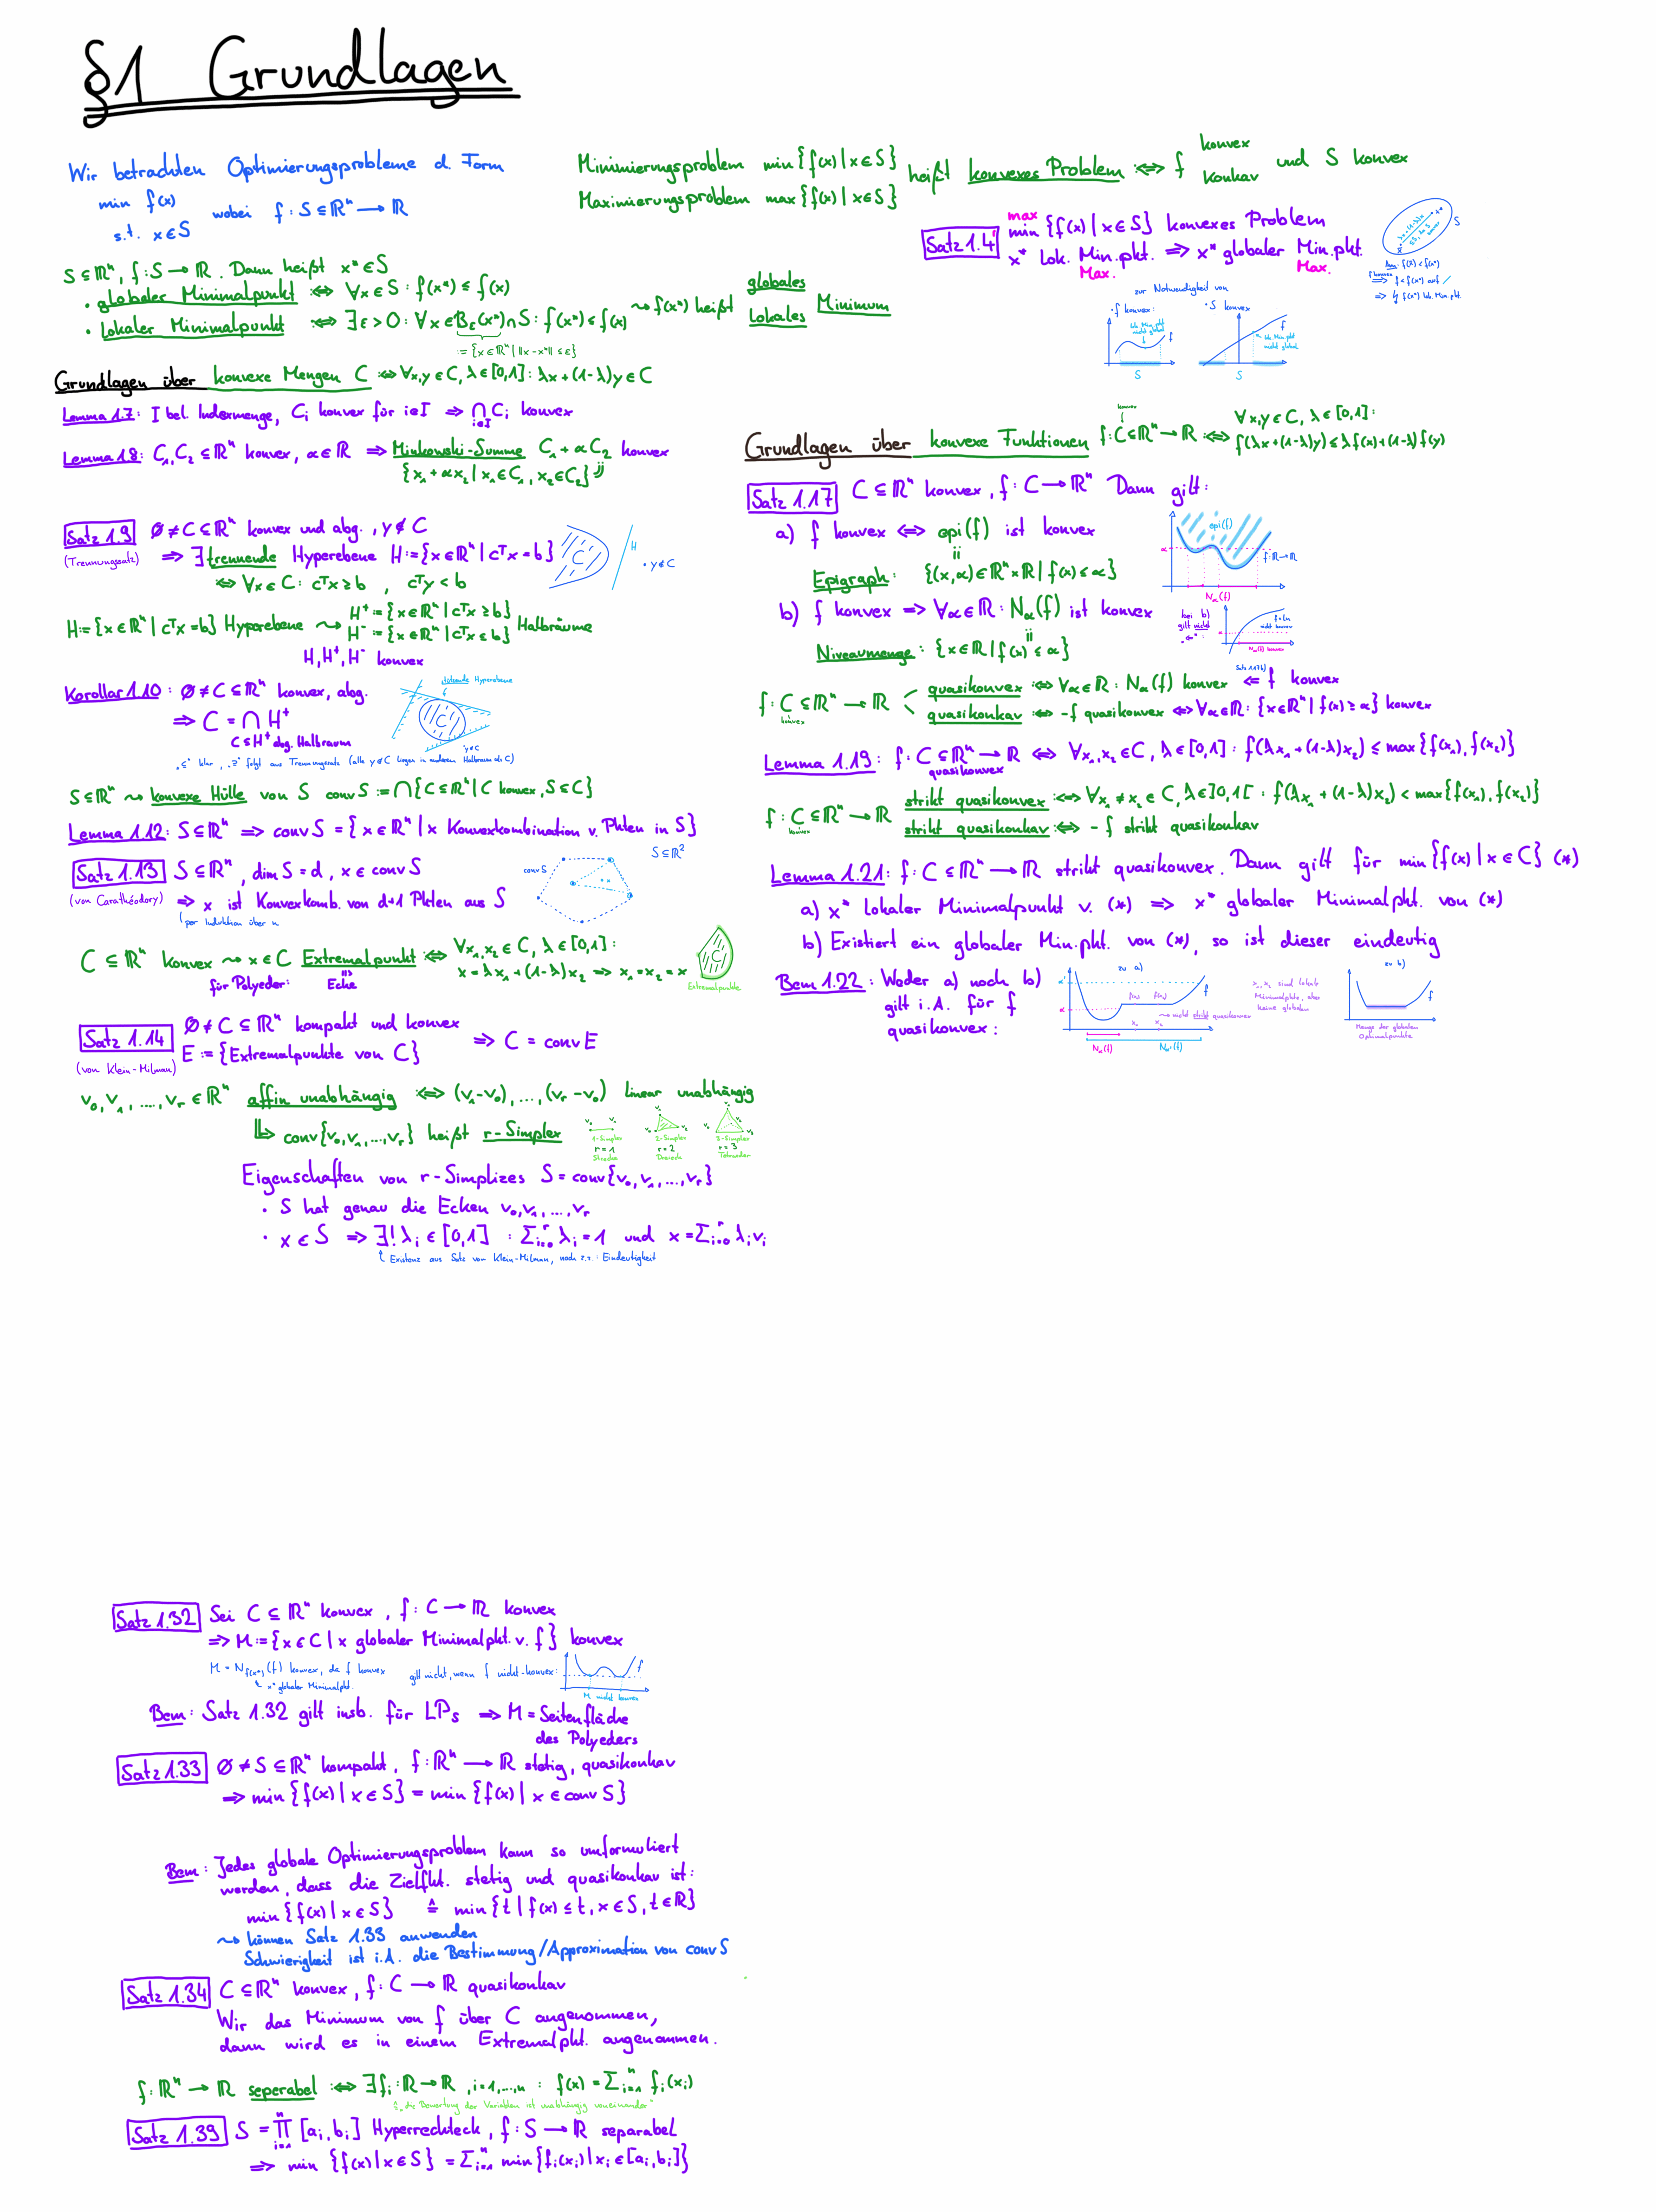 §1 Grundlagen
Wir betrachten Optimierungsprobleme d. Form
min f(x)
s.t. x∈S
wobei f: S⊆ℝⁿ → ℝ
S⊆ℝⁿ, f: S→ℝ. Dann heißt x*∈S
• globaler Minimalpunkt :⇔ ∀x∈S: f(x*) ≤ f(x)
• lokaler Minimalpunkt :⇔ ∃ε>0: ∀x∈B_ε(x*)∩S: f(x*) ≤ f(x)
:= {x∈ℝⁿ | ‖x-x*‖ ≤ ε}
⇝ f(x*) heißt
globales
lokales
Minimum
Minimierungsproblem min{f(x) | x∈S}
Maximierungsproblem max{f(x) | x∈S}
heißt konvexes Problem :⇔ f
konvex
konkav
und S konvex
max
Satz 1.4 min {f(x) | x∈S} konvexes Problem
x* lok. Min.pkt. ⇒ x* globaler Min.pkt.
Max. Max.
S
Ann: f(x̄) < f(x*)
f konvex
⇒ f < f(x*) auf /
⇒ ↯ f(x*) lok. Min.pkt.
zur Notwendigkeit von
• f konvex:
lok. Min.pkt nicht global
f
S
• S konvex
f
lok. Min.pkt nicht global
S
Grundlagen über konvexe Mengen C :⇔ ∀x,y∈C, λ∈[0,1]: λx+(1-λ)y∈C
Lemma 1.7: I bel. Indexmenge, C_i konvex für i∈I ⇒ ⋂_{i∈I} C_i konvex
Lemma 1.8: C₁,C₂ ⊆ℝⁿ konvex, α∈ℝ ⇒ Minkowski-Summe C₁+αC₂ konvex
{x₁+αx₂ | x₁∈C₁, x₂∈C₂}
Satz 1.9 ∅≠C⊆ℝⁿ konvex und abg., y∉C
(Trennungssatz) ⇒ ∃ trennende Hyperebene H:={x∈ℝⁿ | cᵀx=b}
⇔ ∀x∈C: cᵀx≥b , cᵀy<b
C
H
• y∉C
H:={x∈ℝⁿ | cᵀx=b} Hyperebene ⇝
H⁺:={x∈ℝⁿ | cᵀx≥b}
H⁻:={x∈ℝⁿ | cᵀx≤b}
Halbräume
H,H⁺,H⁻ konvex
Korollar 1.10: ∅≠C⊆ℝⁿ konvex, abg.
⇒ C = ⋂ H⁺
C⊆H⁺ abg. Halbraum
stützende Hyperebene
C
• y∉C
„⊆" klar, „⊇" folgt aus Trennungssatz (alle y∉C liegen in anderem Halbraum als C)
S⊆ℝⁿ ⇝ konvexe Hülle von S conv S := ⋂{C⊆ℝⁿ | C konvex, S⊆C}
Lemma 1.12: S⊆ℝⁿ ⇒ conv S = {x∈ℝⁿ | x Konvexkombination v. Pkten in S}
Satz 1.13 S⊆ℝⁿ, dim S = d, x∈conv S
(von Carathéodory) ⇒ x ist Konvexkomb. von d+1 Pkten aus S
per Induktion über n
conv S
S⊆ℝ²
x
C⊆ℝⁿ konvex ⇝ x∈C Extremalpunkt :⇔ ∀x₁,x₂∈C, λ∈[0,1]:
x=λx₁+(1-λ)x₂ ⇒ x₁=x₂=x
für Polyeder: Ecke
C
Extremalpunkte
Satz 1.14 ∅≠C⊆ℝⁿ kompakt und konvex
E:={Extremalpunkte von C}
⇒ C = conv E
(von Klein-Milman)
v₀,v₁,…,v_r∈ℝⁿ affin unabhängig :⇔ (v₁-v₀),…,(v_r-v₀) linear unabhängig
↳ conv{v₀,v₁,…,v_r} heißt r-Simplex
1-Simplex r=1 Strecke
2-Simplex r=2 Dreieck
3-Simplex r=3 Tetraeder
Eigenschaften von r-Simplizes S = conv{v₀,v₁,…,v_r}
• S hat genau die Ecken v₀,v₁,…,v_r
• x∈S ⇒ ∃! λ_i∈[0,1] : Σ_{i=0}^r λ_i = 1 und x = Σ_{i=0}^r λ_i v_i
Existenz aus Satz von Klein-Milman, noch z.z.: Eindeutigkeit
Grundlagen über konvexe Funktionen f: C⊆ℝⁿ→ℝ :⇔
konvex
∀x,y∈C, λ∈[0,1]:
f(λx+(1-λ)y) ≤ λf(x)+(1-λ)f(y)
Satz 1.17 C⊆ℝⁿ konvex, f: C→ℝⁿ Dann gilt:
a) f konvex ⇔ epi(f) ist konvex
Epigraph: {(x,α)∈ℝⁿ×ℝ | f(x)≤α}
b) f konvex ⇒ ∀α∈ℝ: N_α(f) ist konvex
Niveaumenge: {x∈ℝ | f(x)≤α}
epi(f)
α
f: ℝ→ℝ
N_α(f)
bei b) gilt nicht „⇐"
f=ln nicht konvex
α
N_α(f) konvex
f: C⊆ℝⁿ → ℝ
konvex
Satz 1.17b)
quasikonvex :⇔ ∀α∈ℝ: N_α(f) konvex ⇐ f konvex
quasikonkav :⇔ -f quasikonvex ⇔ ∀α∈ℝ: {x∈ℝⁿ | f(x)≥α} konvex
Lemma 1.19: f: C⊆ℝⁿ→ℝ ⇔ ∀x₁,x₂∈C, λ∈[0,1]: f(λx₁+(1-λ)x₂) ≤ max{f(x₁),f(x₂)}
quasikonvex
f: C⊆ℝⁿ→ℝ
konvex
strikt quasikonvex :⇔ ∀x₁≠x₂∈C, λ∈]0,1[ : f(λx₁+(1-λ)x₂) < max{f(x₁),f(x₂)}
strikt quasikonkav :⇔ -f strikt quasikonkav
Lemma 1.21: f: C⊆ℝⁿ→ℝ strikt quasikonvex. Dann gilt für min{f(x) | x∈C} (*)
a) x* lokaler Minimalpunkt v. (*) ⇒ x* globaler Minimalpkt. von (*)
b) Existiert ein globaler Min.pkt. von (*), so ist dieser eindeutig
Bem 1.22: Weder a) noch b)
gilt i.A. für f
quasikonvex:
zu a)
α'
α
f(x₁) f(x₂)
f
⇝ nicht strikt quasikonvex
x₁ x₂
N_α(f) N_α'(f)
x₁,x₂ sind lokale
Minimalpkte, aber
keine globalen
zu b)
f
Menge der globalen
Optimalpunkte
Satz 1.32 Sei C⊆ℝⁿ konvex, f: C→ℝ konvex
⇒ M:={x∈C | x globaler Minimalpkt. v. f} konvex
M = N_{f(x*)}(f) konvex, da f konvex
x* globaler Minimalpkt.
gilt nicht, wenn f nicht-konvex:
f
M nicht konvex
Bem: Satz 1.32 gilt insb. für LPs ⇒ M = Seitenfläche
des Polyeders
Satz 1.33 ∅≠S⊆ℝⁿ kompakt, f: ℝⁿ→ℝ stetig, quasikonkav
⇒ min{f(x) | x∈S} = min{f(x) | x∈conv S}
Bem: Jedes globale Optimierungsproblem kann so umformuliert
werden, dass die Zielfkt. stetig und quasikonkav ist:
min{f(x) | x∈S} ≙ min{t | f(x)≤t, x∈S, t∈ℝ}
⇝ können Satz 1.33 anwenden
Schwierigkeit ist i.A. die Bestimmung/Approximation von conv S
Satz 1.34 C⊆ℝⁿ konvex, f: C→ℝ quasikonkav
Wir das Minimum von f über C angenommen,
dann wird es in einem Extremalpkt. angenommen.
f: ℝⁿ→ℝ seperabel :⇔ ∃f_i: ℝ→ℝ, i=1,…,n : f(x) = Σ_{i=1}^n f_i(x_i)
≙ „die Bewertung der Variablen ist unabhängig voneinander"
Satz 1.39 S = ∏_{i=1}^n [a_i,b_i] Hyperrechteck, f: S→ℝ separabel
⇒ min {f(x) | x∈S} = Σ_{i=1}^n min{f_i(x_i) | x_i∈[a_i,b_i]}